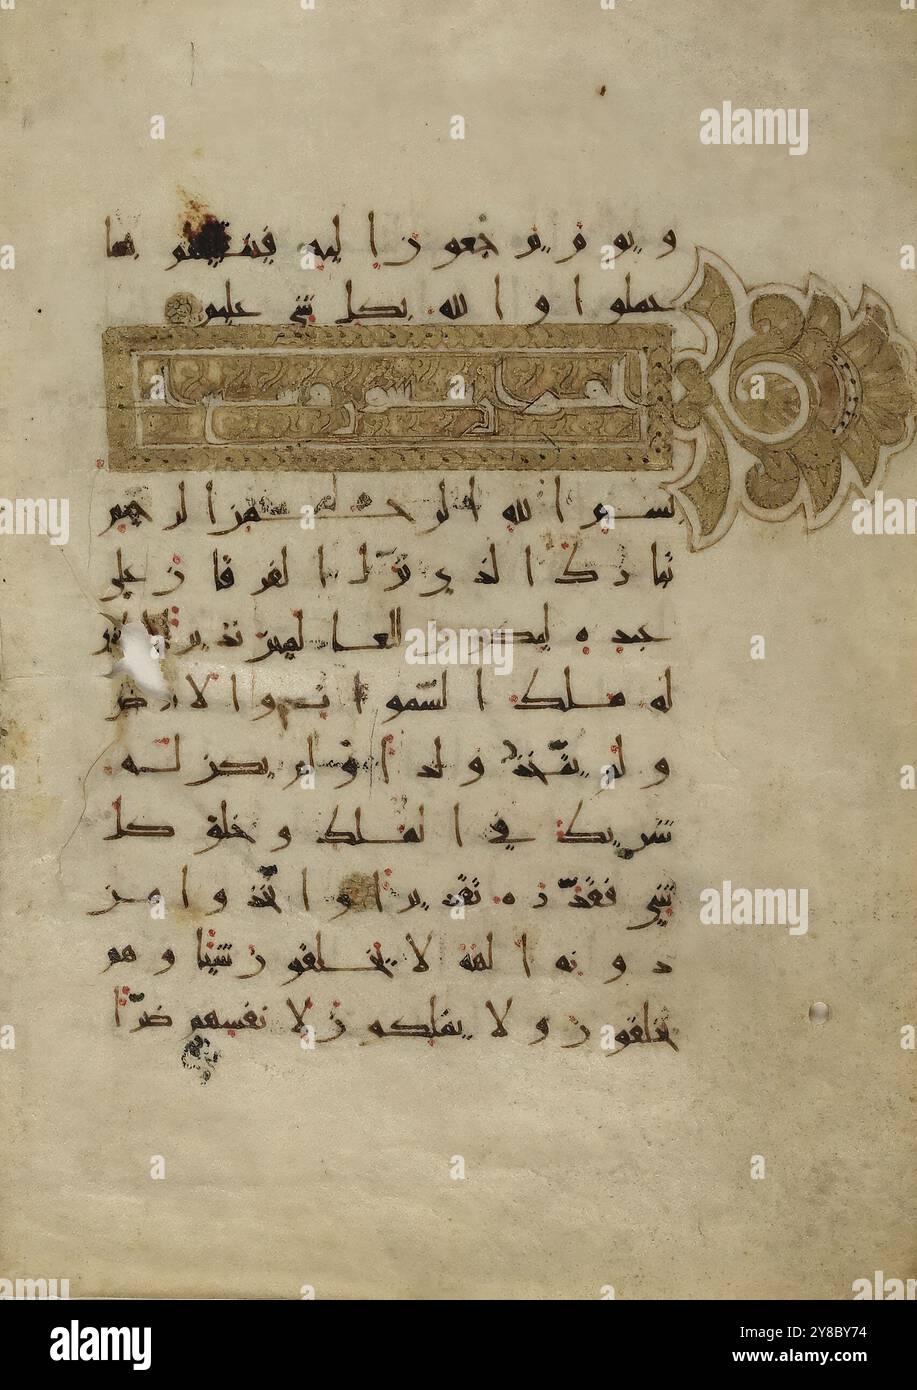 و يوم يرجعون اليه فينبئهم بما
عملوا و الله بكل شي عليم
بسم الله الرحمن الرحيم
تبارك الذي نزل الفرقان على
عبده ليكون للعالمين نذيرا الذي
له ملك السموات والارض
ولم يتخذ ولدا ولم يكن له
شريك في الملك وخلق كل
شي فقدره تقديرا واتخذوا من
دونه الهة لا يخلقون شيئا وهم
يخلقون ولا يملكون لانفسهم ضرا
alamy
Image ID: 2Y8BY74
www.alamy.com